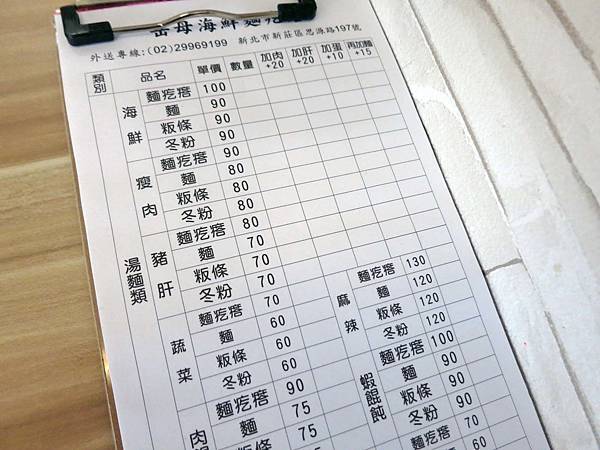 岳母海鮮麵疙
外送專線:(02)29969199 新北市新莊區思源路197號
類別 品名 單價 數量 加肉+20 加肝+20 加蛋+10 再加麵+15
湯麵類
海鮮
麵疙瘩 100
麵 90
粄條 90
冬粉 90
瘦肉
麵疙瘩 90
麵 80
粄條 80
冬粉 80
豬肝
麵疙瘩 80
麵 70
粄條 70
冬粉 70
蔬菜
麵疙瘩 70
麵 60
粄條 60
冬粉 60
肉
麵疙瘩 90
麵 75
粄條 75
麻辣
麵疙瘩 130
麵 120
粄條 120
冬粉 120
蝦餛飩
麵疙瘩 100
麵 90
粄條 90
冬粉 90
麵疙瘩
麵